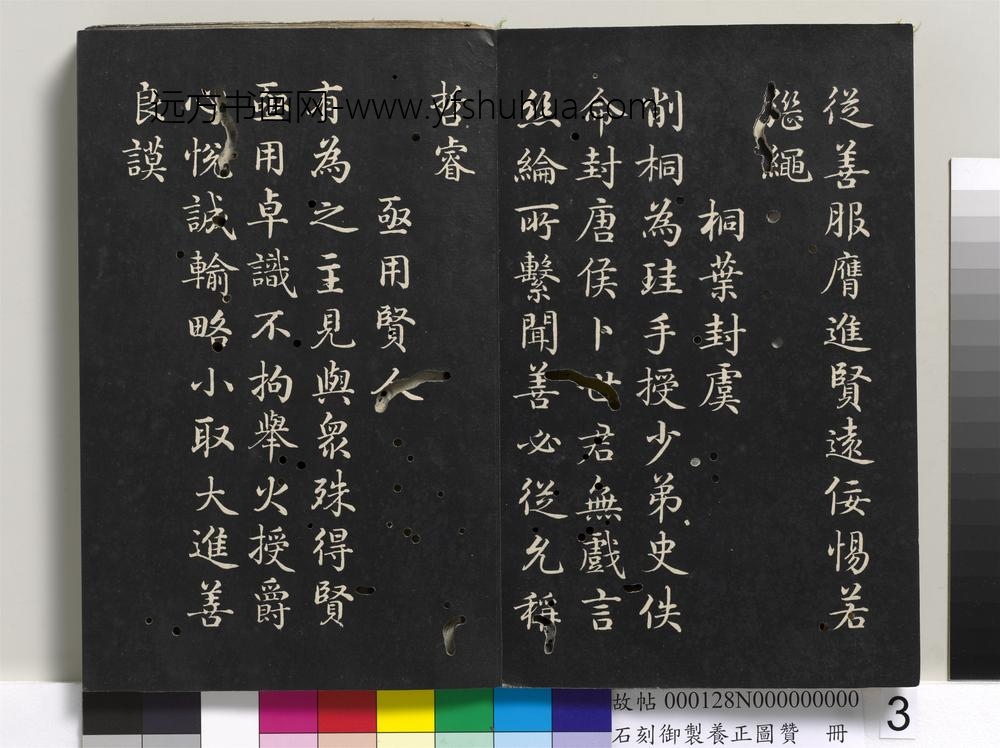 從善服膺進賢遠佞惕若
繼繩
桐葉封虞
削桐為珪手授少弟史佚
命封唐侯卜世君無戲言
絲綸所繫聞善必從允稱
哲睿
亟用賢人
有為之主見與衆殊得賢
亟用卓識不拘舉火授爵
悅誠輸略小取大進善
良謨
远方书画网-www.yfshuhua.com
故帖 000128N000000000
石刻御製養正圖贊 冊
3